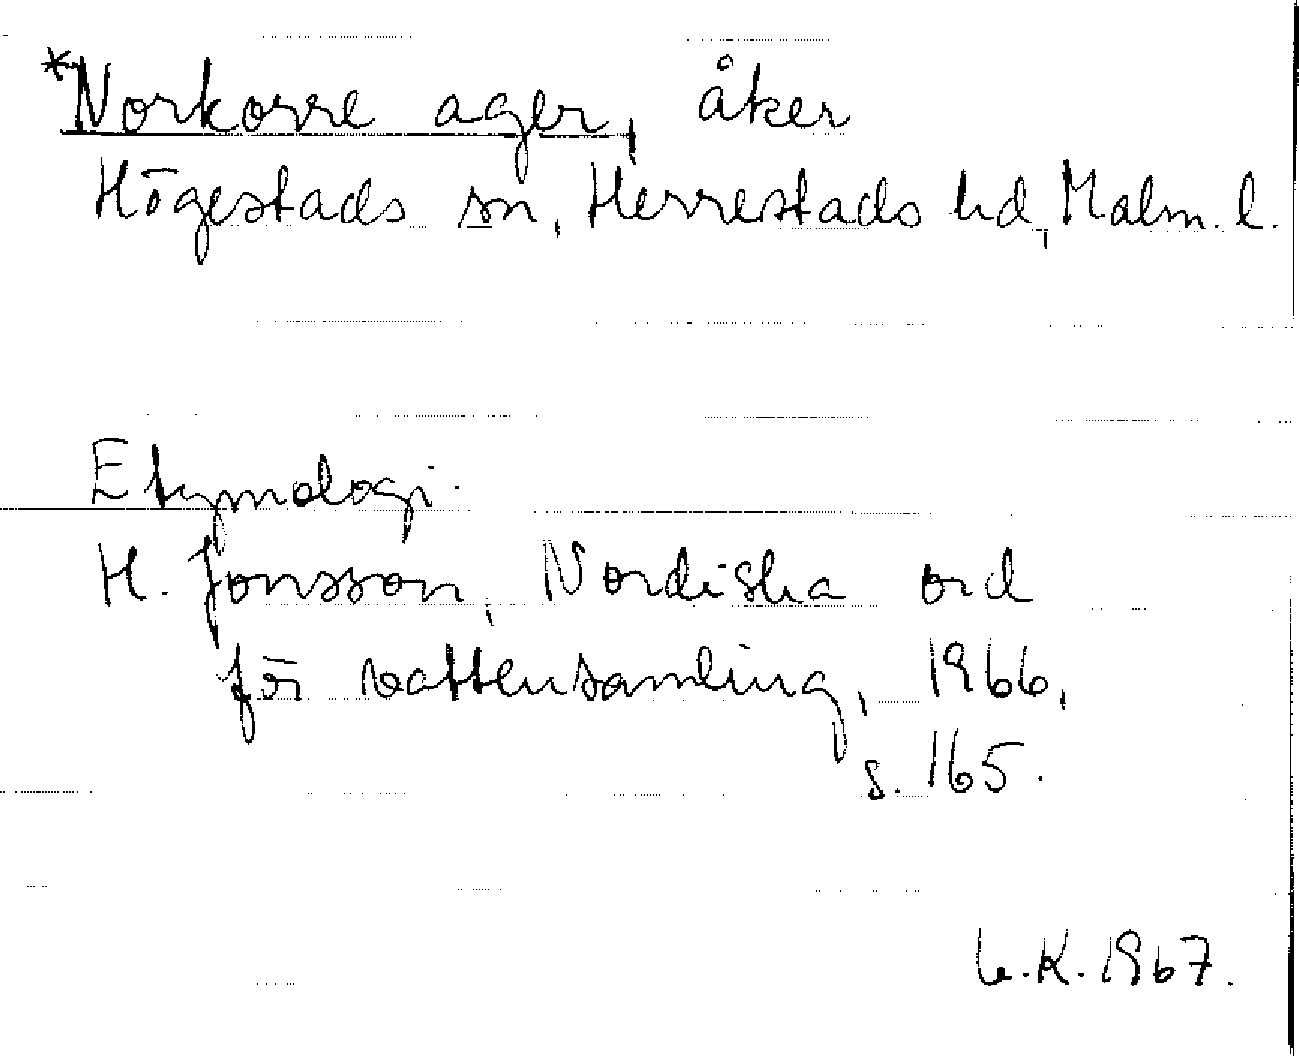 *Norkorre ager, åker
Högestads sn, Herrestads hd, Malm. l.
Etymologi.
H. Jonsson, Nordiska ord
för vattensamling, 1966,
s. 165.
G.K. 1967.